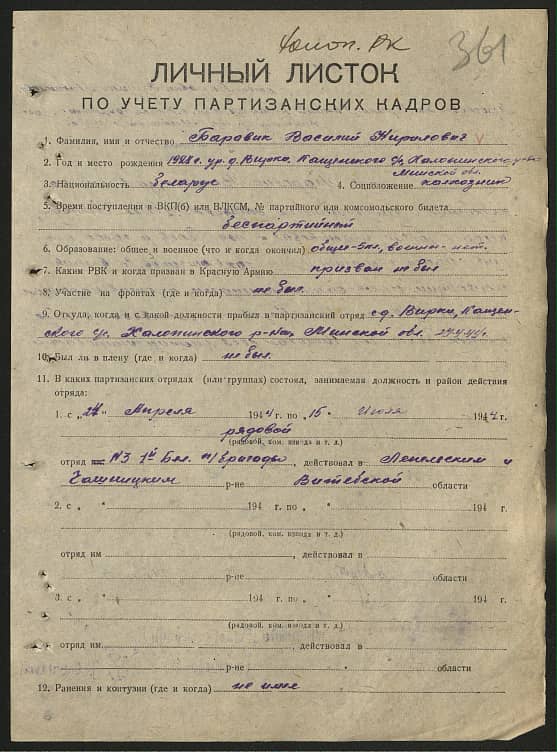 Холоп. РК
361
ЛИЧНЫЙ ЛИСТОК
ПО УЧЕТУ ПАРТИЗАНСКИХ КАДРОВ
1. Фамилия, имя и отчество Баровик Василий Кирилович
2. Год и место рождения 1928 г. ур. д. Вирки, Кащенского с/с, Холопинского р-на
Минской обл.
3. Национальность беларус 4. Соцположение колхозник
5. Время поступления в ВКП(б) или ВЛКСМ, № партийного или комсомольского билета
беспартийный
6. Образование: общее и военное (что и когда окончил) общее-5кл, военн.- нет.
7. Каким РВК и когда призван в Красную Армию призван не был
8. Участие на фронтах (где и когда) не был.
9. Откуда, когда и с какой должности прибыл в партизанский отряд с д. Вирки, Кащен-
ского с/с, Холопинского р-на, Минской обл. 27.4.44г.
10. Был ли в плену (где и когда) не был.
11. В каких партизанских отрядах (или группах) состоял, занимаемая должность и район действия
отряда:
1. с „27“ Апреля 1944 г. по „15“ Июля 1944 г.
рядовой
(рядовой, ком. взвода и т. д.)
отряд №3 1й бригады, действовал в Лепельском и
Чашницким р-не Витебской области
2. с „ “ 194 г. по „ “ 194 г.
(рядовой, ком. взвода и т. д.)
отряд им , действовал в
р-не области
3. с „ “ 194 г. по „ “ 194 г.
(рядовой, ком. взвода и т. д.)
отряд им , действовал в
р-не области
12. Ранения и контузии (где и когда) не имел